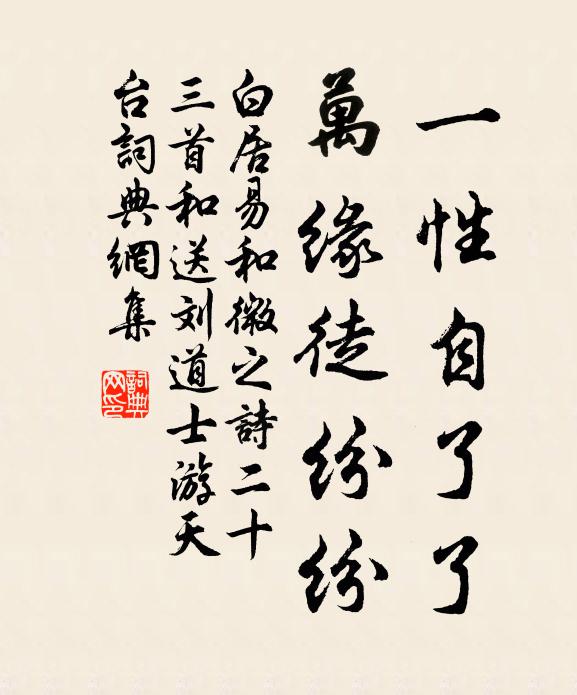 一性自了了
萬緣徒紛紛
白居易和微之詩二十
三首和送刘道士游天
台詞典網集
詞典
网印